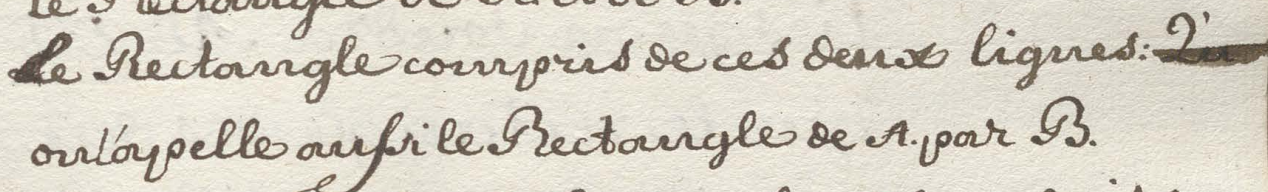 le Rectangle de
Le Rectangle compris de ces deux lignes:
on l'apelle aussi le Rectangle de A. par B.